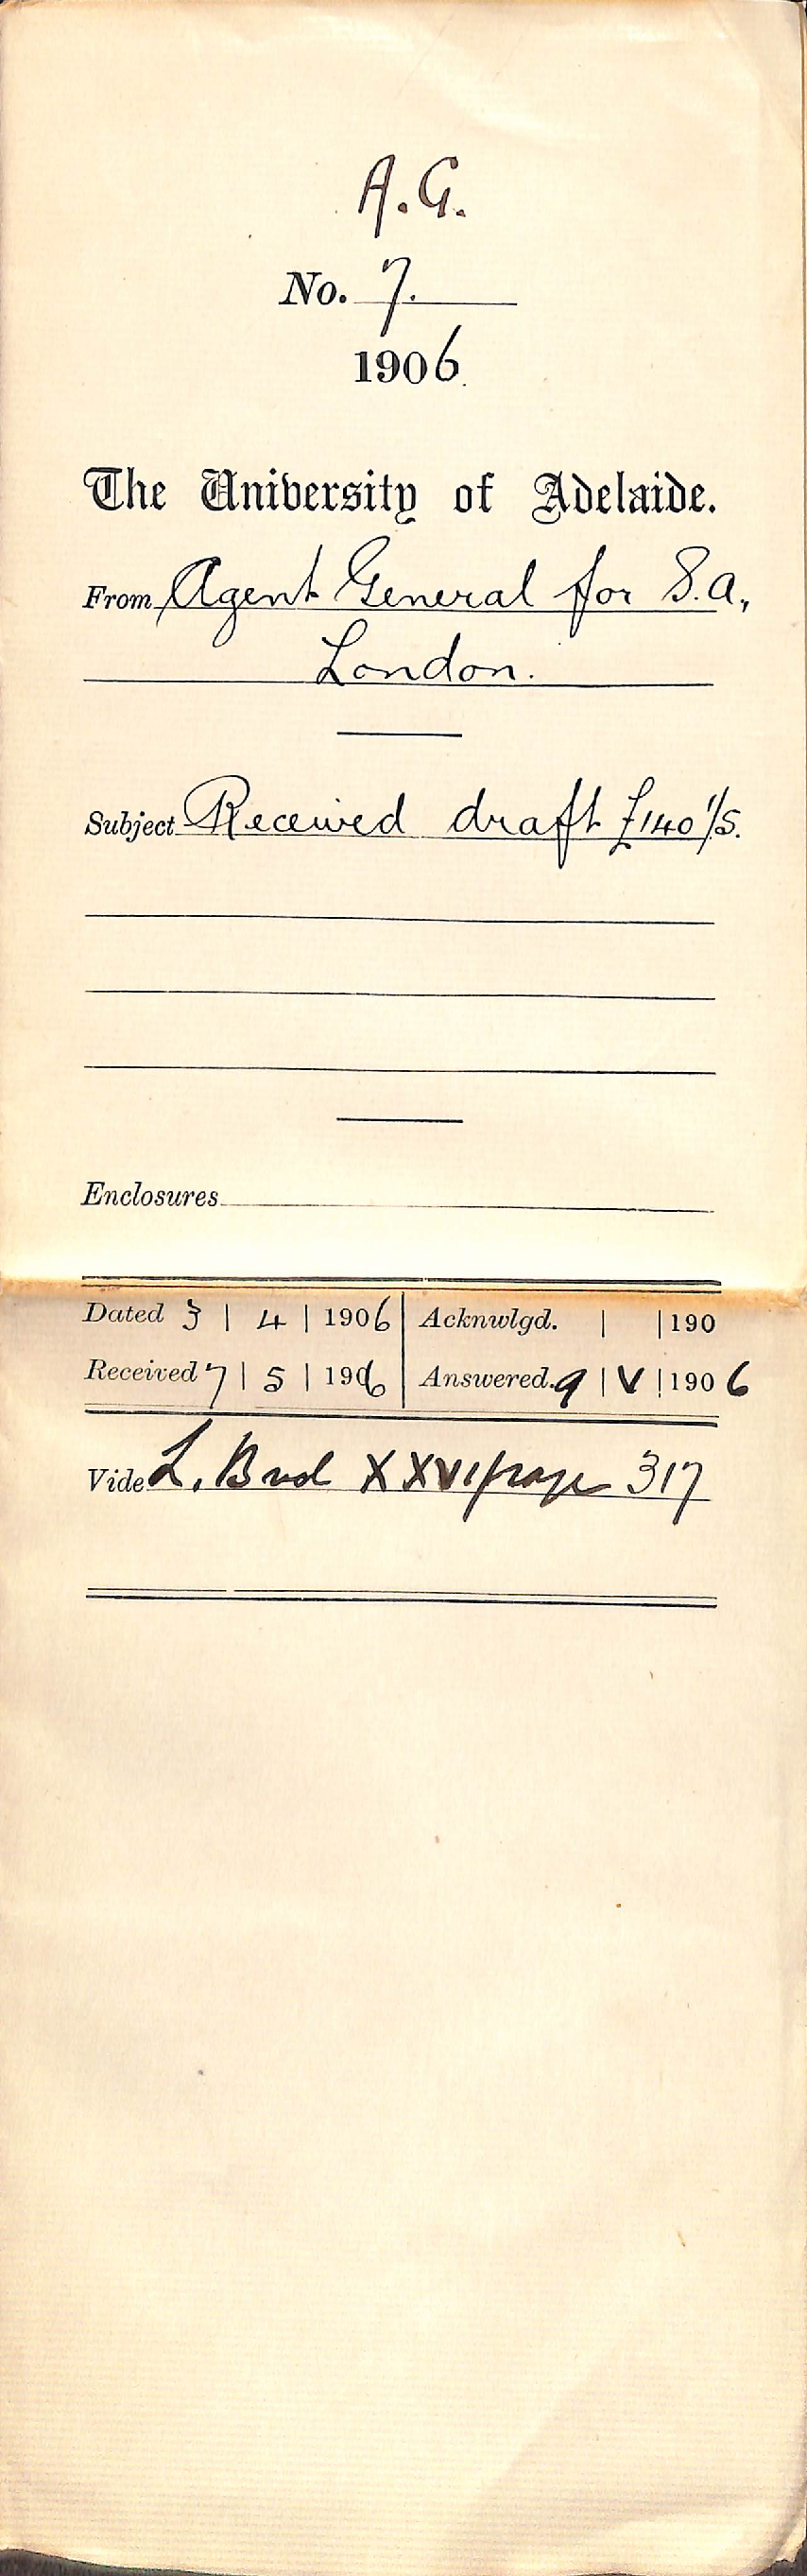 A.G.
No. 7.
1906
The University of Adelaide.
From Agent General for S.A,
London.
Subject Received draft £140/1/5.
Enclosures
Dated 3 | 4 | 1906 Acknwlgd. | | 190
Received 7 | 5 | 1906 Answered. 9 | V | 1906
Vide L. Book XXVI page 317